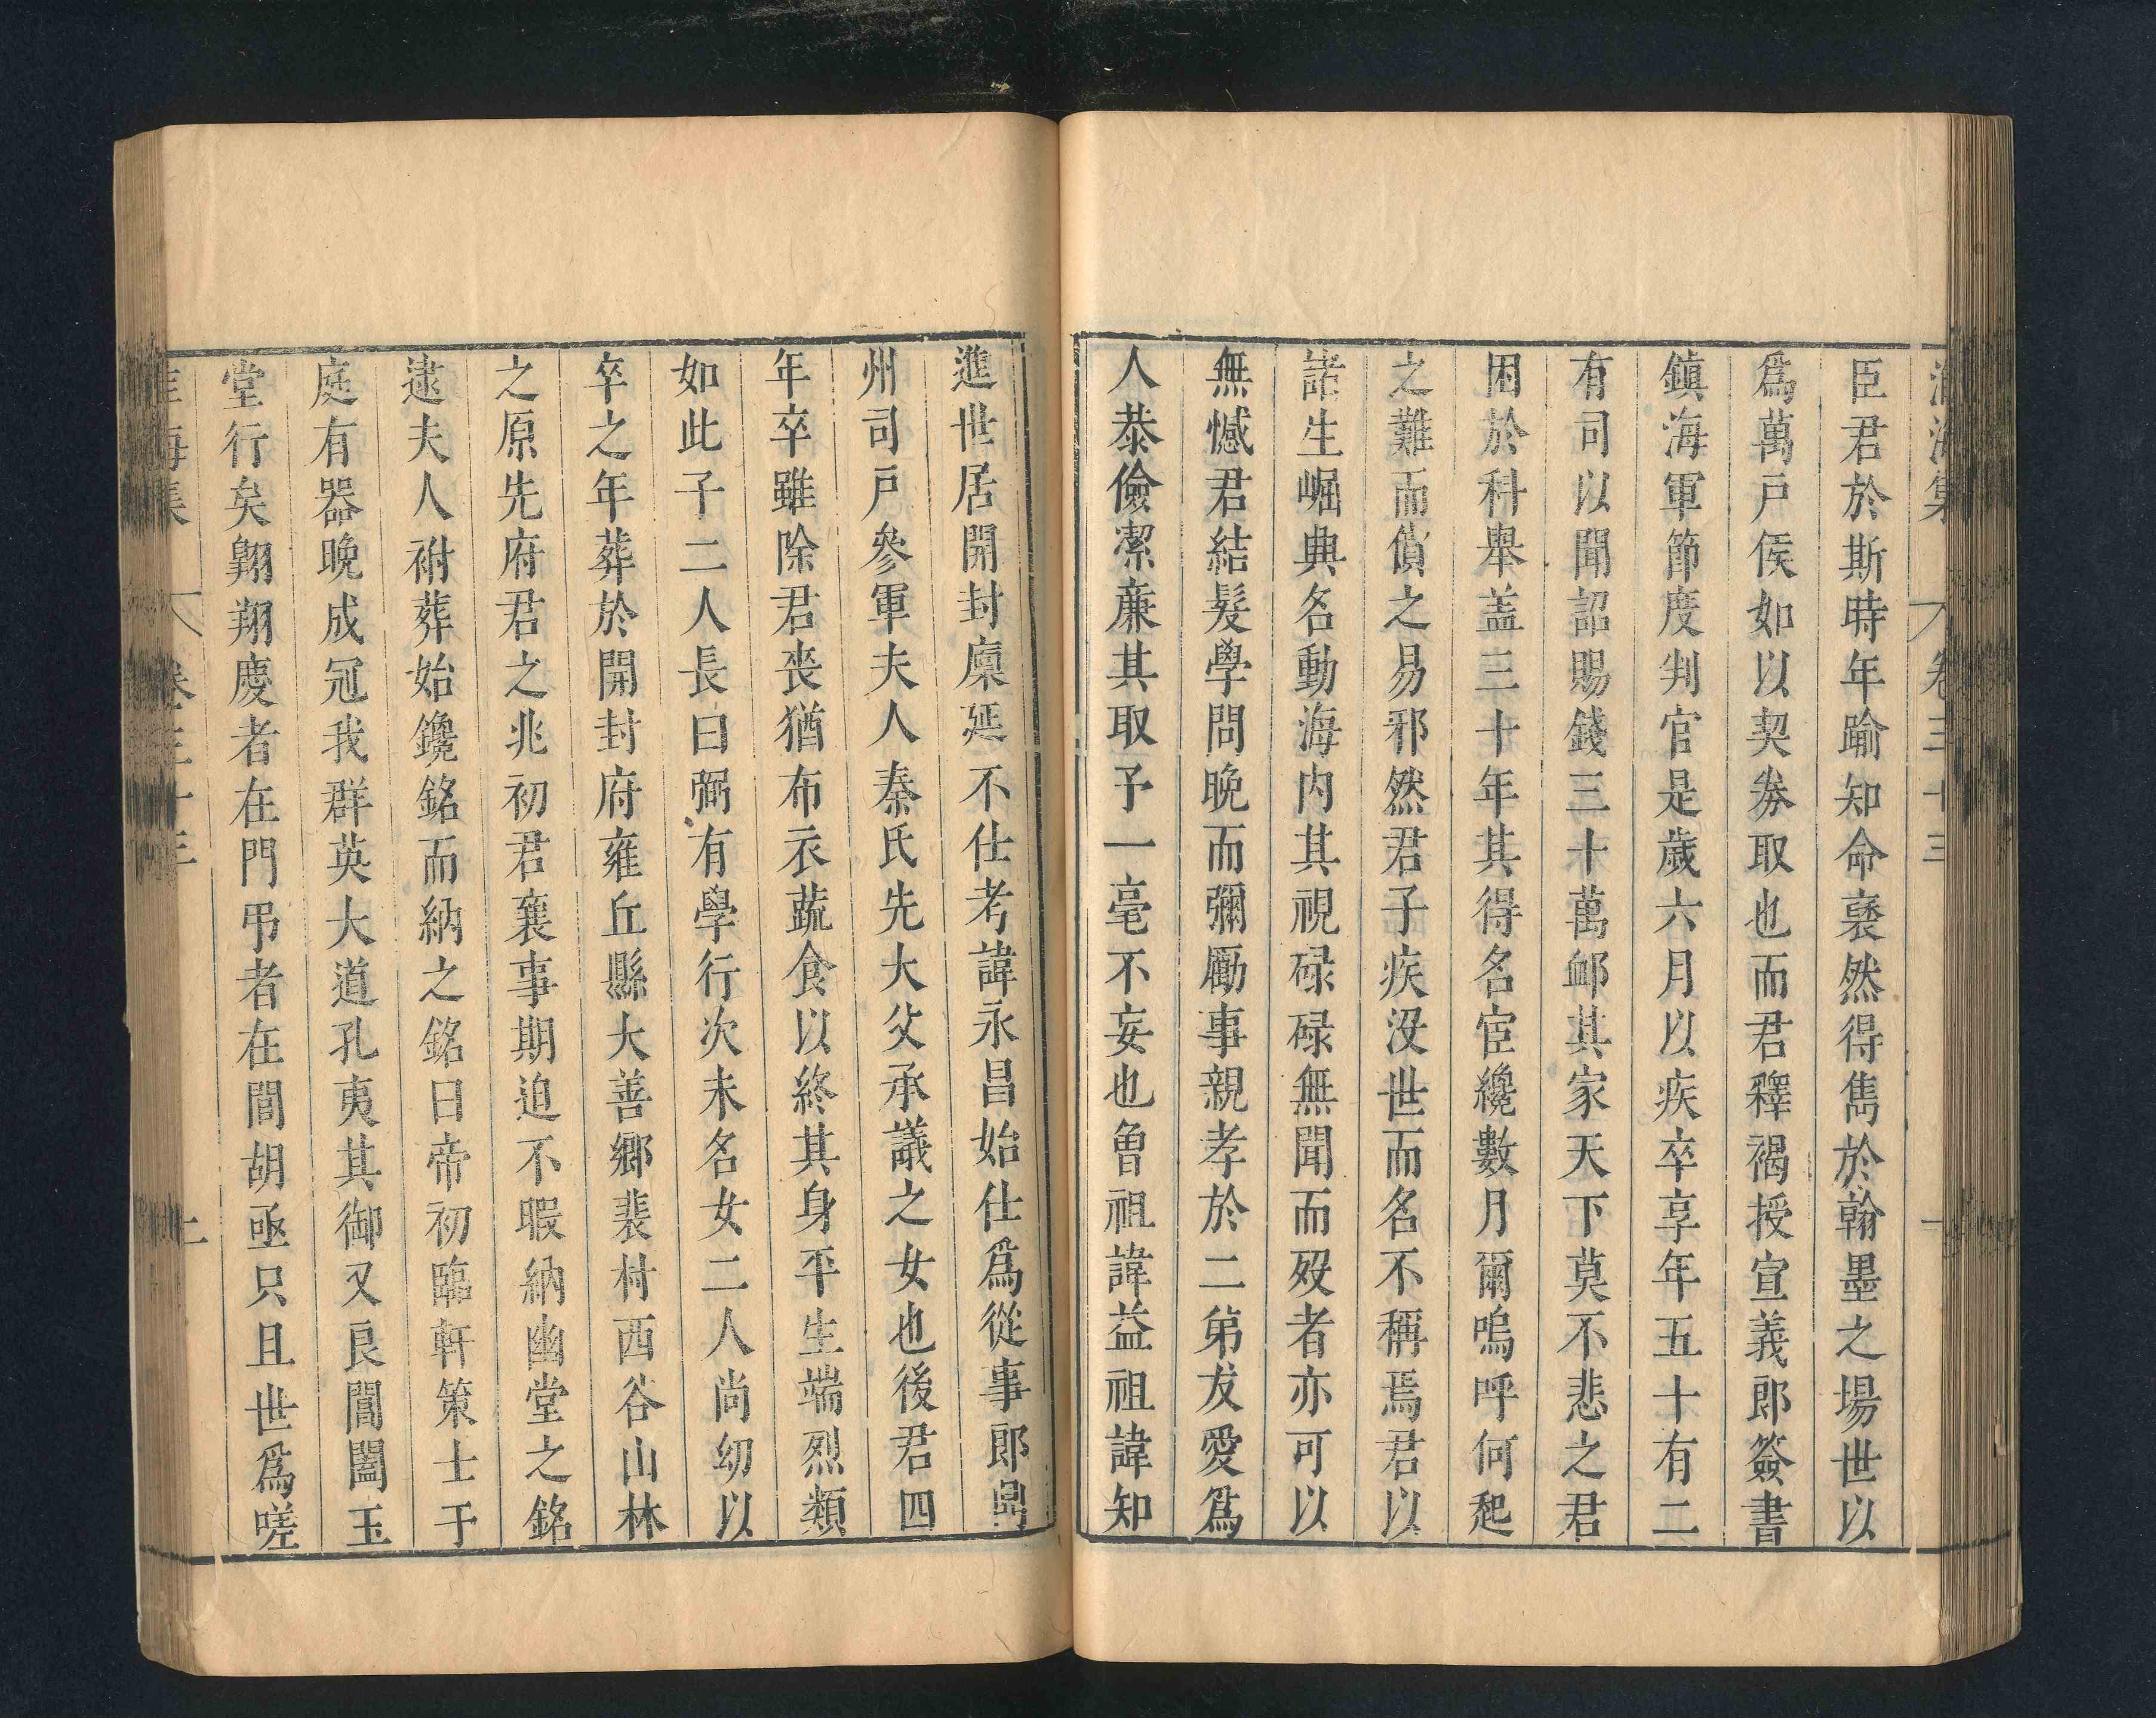 淮海集 卷三十三
臣君於斯時年踰知命褎然得雋於翰墨之場世以
爲萬戸侯如以契券取也而君釋褐授宣義郎簽書
鎮海軍節度判官是歲六月以疾卒享年五十有二
有司以聞詔賜錢三十萬䘏其家天下莫不悲之君
困於科舉盖三十年其得名宦纔數月爾嗚呼何起
之難而僨之易邪然君子疾没世而名不稱焉君以
諸生崛典名動海内其視碌碌無聞而歿者亦可以
無憾君結髮學問晚而彌勵事親孝於二弟友愛爲
人恭儉潔亷其取予一毫不妄也曾祖諱益祖諱知
進世居開封廩延不仕考諱永昌始仕爲從事郎鼎
州司戸參軍夫人秦氏先大父承議之女也後君四
年卒雖除君喪猶布衣蔬食以終其身平生端烈類
如此子二人長曰弼有學行次未名女二人尚幼以
卒之年葬於開封府雍丘縣大善鄉裴村西谷山林
之原先府君之兆初君襄事期迫不暇納幽堂之銘
逮夫人祔葬始鑱銘而納之銘曰帝初臨軒策士于
庭有器晚成冠我群英大道孔夷其御又良閶闔玉
堂行矣翺翔慶者在門弔者在閭胡亟只且世爲嗟
淮海集 卷三十三